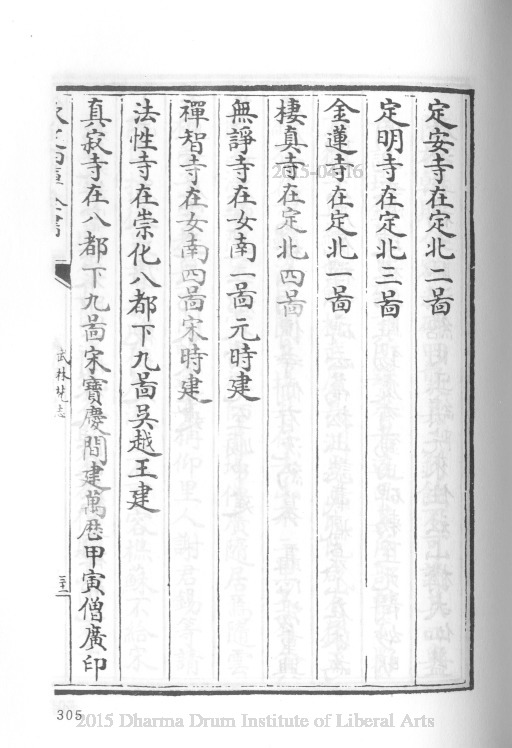 定安寺在定北二啚
定明寺在定北三啚
金蓮寺在定北一啚
棲真寺在定北四啚
無諍寺在女南一啚元時建
禪智寺在女南四啚宋時建
法性寺在崇化八都下九啚吳越王建
真寂寺在八都下九啚宋寶慶間建萬厯甲寅僧廣印
武林梵志
2015-04-16
305
2015 Dharma Drum Institute of Liberal Arts